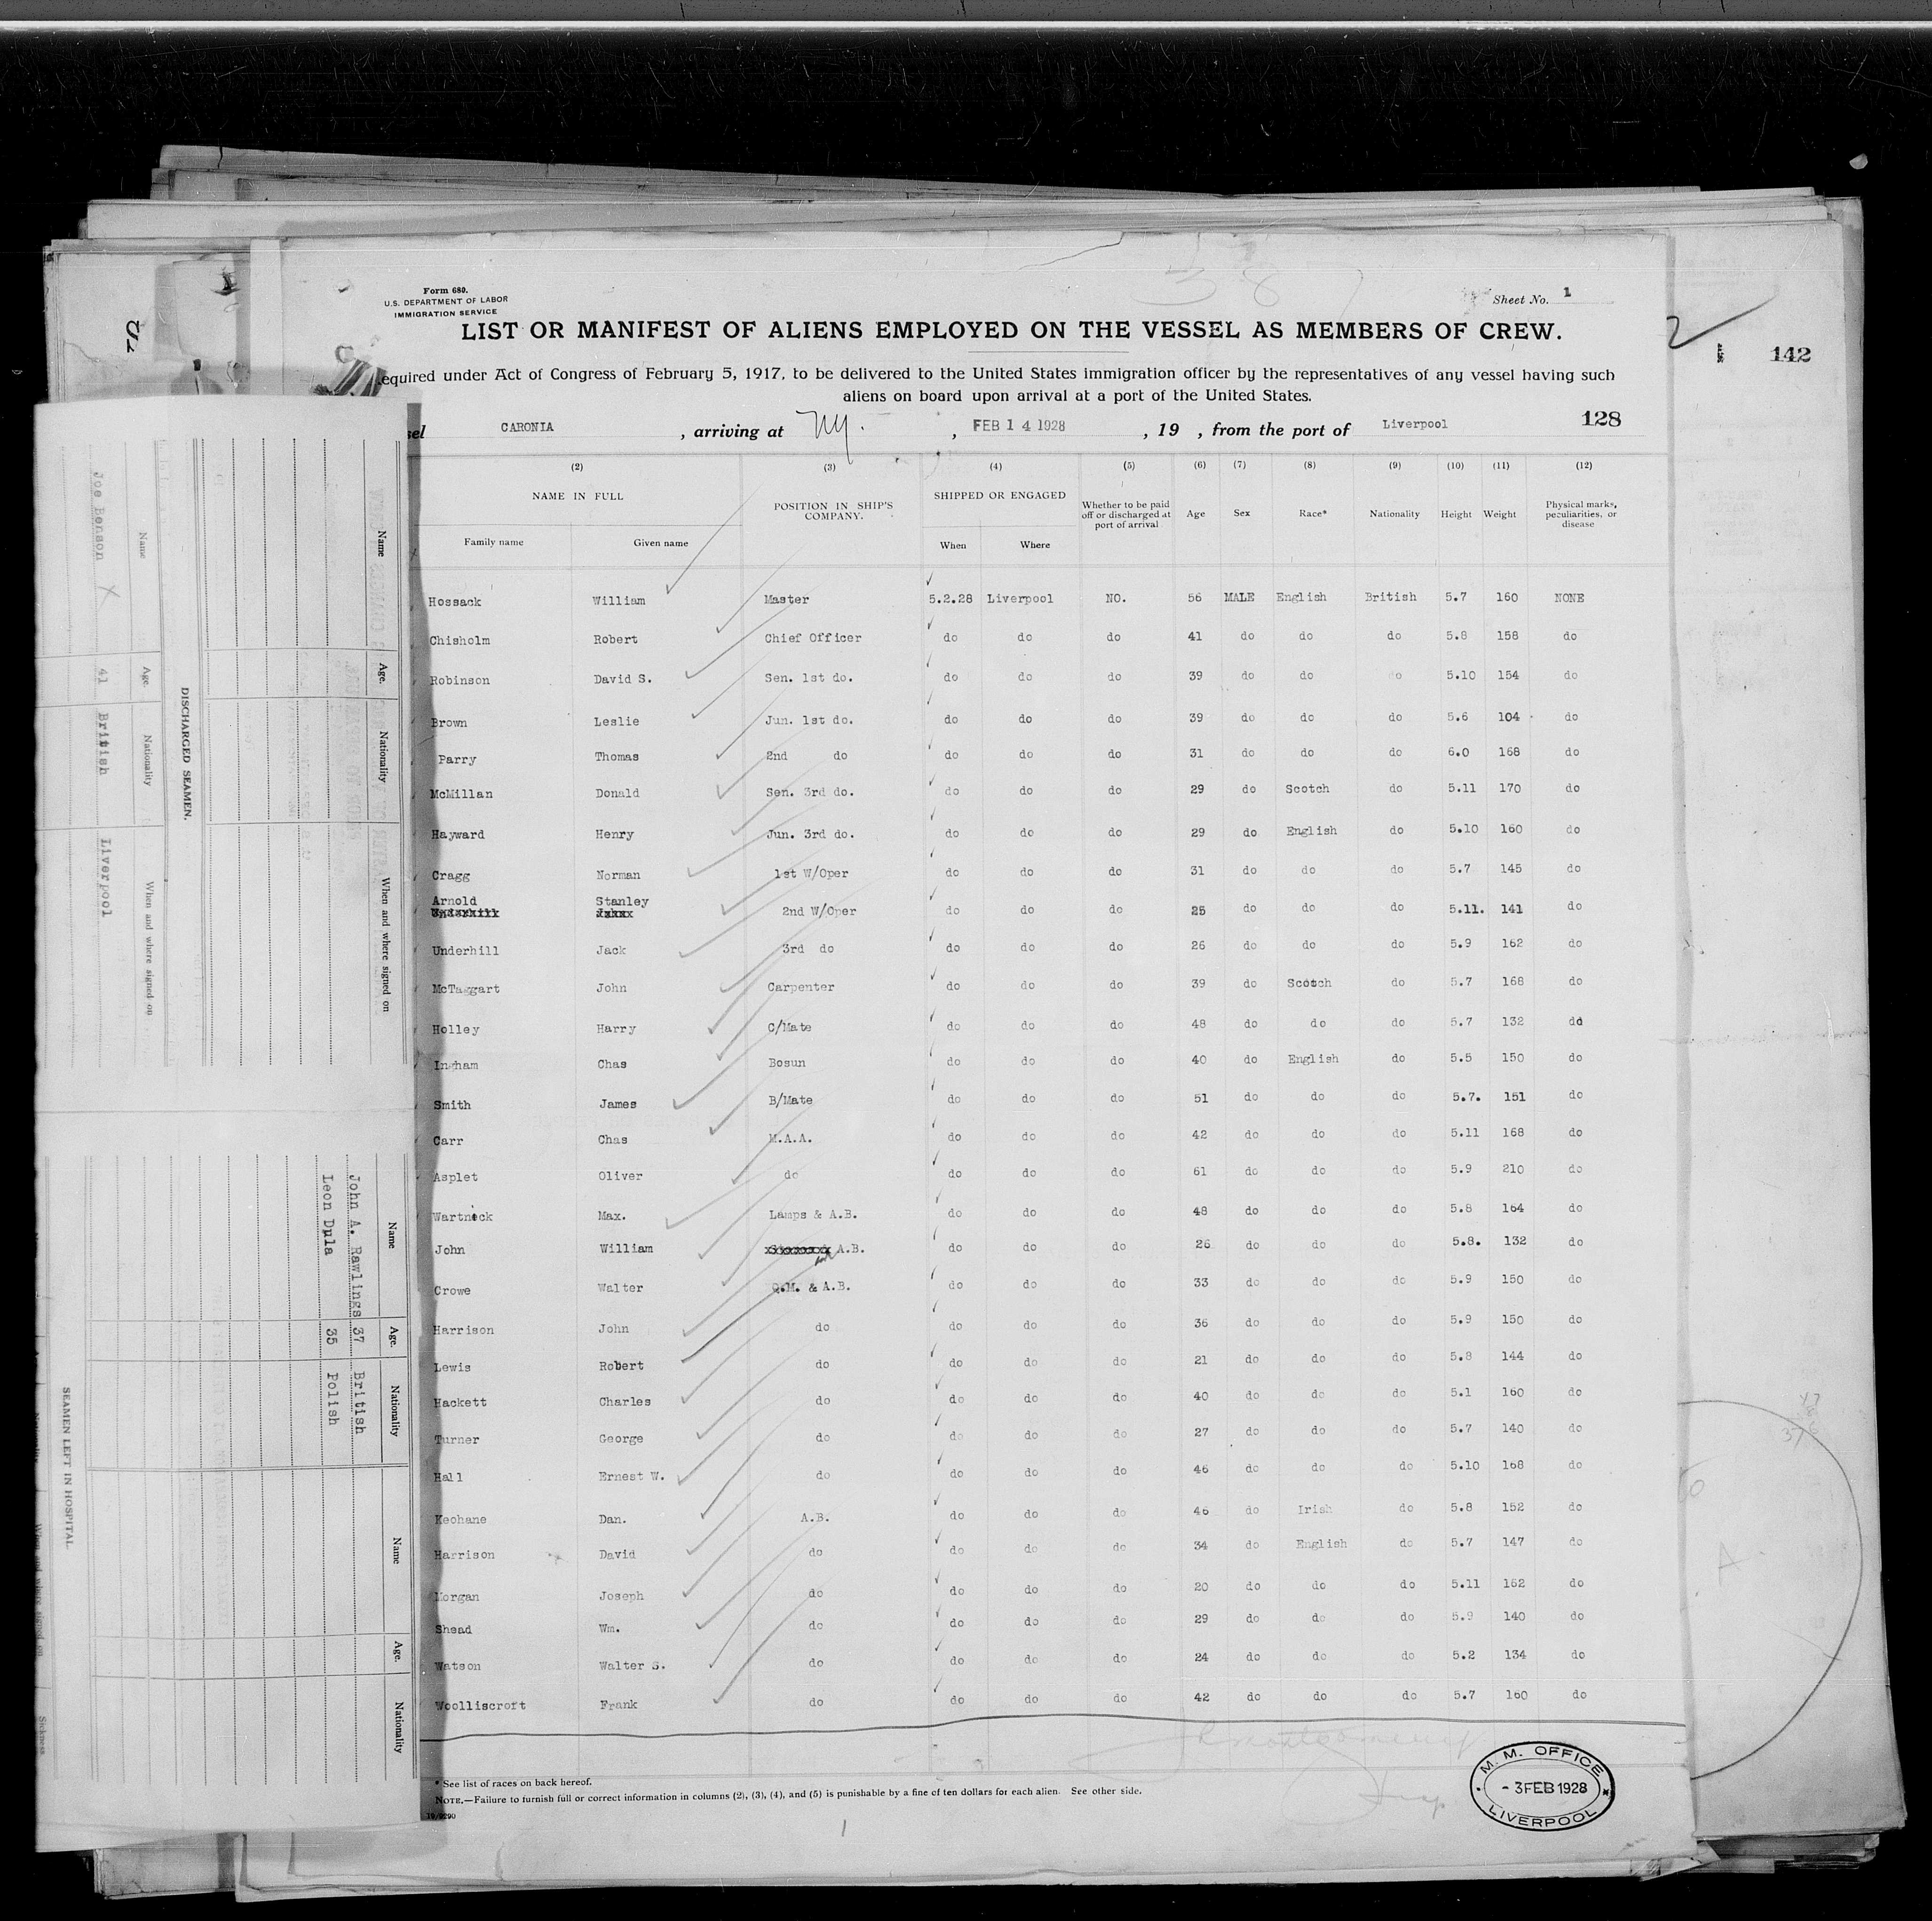 Form 680.
U.S. DEPARTMENT OF LABOR
IMMIGRATION SERVICE
Sheet No. 1
LIST OR MANIFEST OF ALIENS EMPLOYED ON THE VESSEL AS MEMBERS OF CREW.
142
equired under Act of Congress of February 5, 1917, to be delivered to the United States immigration officer by the representatives of any vessel having such
aliens on board upon arrival at a port of the United States.
128
sel CARONIA , arriving at NY. , FEB 14 1928 , 19 , from the port of Liverpool
(2) (3) (4) (5) (6) (7) (8) (9) (10) (11) (12)
NAME IN FULL POSITION IN SHIP'S COMPANY. SHIPPED OR ENGAGED Whether to be paid off or discharged at port of arrival Age Sex Race* Nationality Height Weight Physical marks, peculiarities, or disease
Family name Given name When Where
Hossack William Master 5.2.28 Liverpool NO. 56 MALE English British 5.7 160 NONE
Chisholm Robert Chief Officer do do do 41 do do do 5.8 158 do
Robinson David S. Sen. 1st do. do do do 39 do do do 5.10 154 do
Brown Leslie Jun. 1st do. do do do 39 do do do 5.6 104 do
Parry Thomas 2nd do do do do 31 do do do 6.0 168 do
McMillan Donald Sen. 3rd do. do do do 29 do Scotch do 5.11 170 do
Hayward Henry Jun. 3rd do. do do do 29 do English do 5.10 160 do
Cragg Norman 1st W/Oper do do do 31 do do do 5.7 145 do
Arnold Stanley 2nd W/Oper do do do 25 do do do 5.11. 141 do
Underhill Jack 3rd do do do do 26 do do do 5.9 162 do
McTaggart John Carpenter do do do 39 do Scotch do 5.7 168 do
Holley Harry C/Mate do do do 48 do do do 5.7 132 dd
Ingham Chas Bosun do do do 40 do English do 5.5 150 do
Smith James B/Mate do do do 51 do do do 5.7. 151 do
Carr Chas M.A.A. do do do 42 do do do 5.11 168 do
Asplet Oliver do do do do 61 do do do 5.9 210 do
Wartneck Max. Lamps & A.B. do do do 48 do do do 5.8 164 do
John William A.B. do do do 26 do do do 5.8. 132 do
Crowe Walter Q.M. & A.B. do do do 33 do do do 5.9 150 do
Harrison John do do do do 36 do do do 5.9 150 do
Lewis Robert do do do do 21 do do do 5.8 144 do
Hackett Charles do do do do 40 do do do 5.1 160 do
Turner George do do do do 27 do do do 5.7 140 do
Hall Ernest W. do do do do 46 do do do 5.10 168 do
Keohane Dan. A.B. do do do 46 do Irish do 5.8 152 do
Harrison David do do do do 34 do English do 5.7 147 do
Morgan Joseph do do do do 20 do do do 5.11 162 do
Shead Wm. do do do do 29 do do do 5.9 140 do
Watson Walter S. do do do do 24 do do do 5.2 134 do
Woolliscroft Frank do do do do 42 do do do 5.7 160 do
* See list of races on back hereof.
NOTE.—Failure to furnish full or correct information in columns (2), (3), (4), and (5) is punishable by a fine of ten dollars for each alien. See other side.
M. M. OFFICE
- 3 FEB 1928
LIVERPOOL
Name Age. Nationality When and where signed on
DISCHARGED SEAMEN.
Name Age. Nationality When and where signed on
Joe Benson 41 British Liverpool
Name Age. Nationality Name Age. Nationality
John A. Rawlings 37 British
Leon Dula 35 Polish
SEAMEN LEFT IN HOSPITAL.